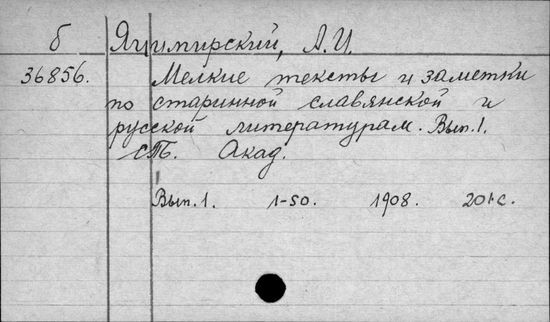 б Яцимирский, А.И.
36856. Мелкие тексты и заметки
по старинной славянской и
русской литературам. Вып.1.
СПб. Акад.
Вып.1. 1-50. 1908. 201с.